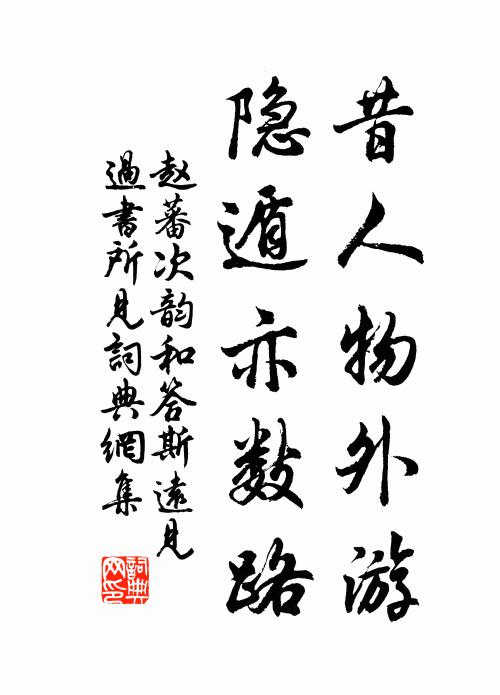 昔人物外游
隐遁亦数路
赵蕃次韵和答斯遠見
過書所見詞典網集
詞典网印